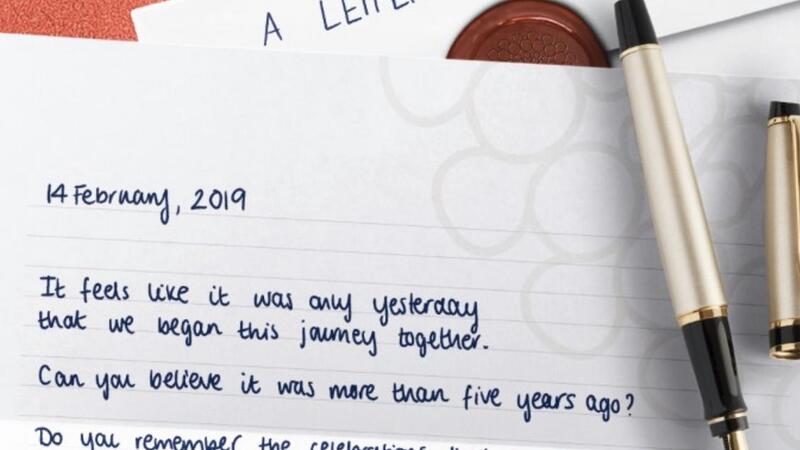 A LETTER
14 February, 2019
It feels like it was only yesterday
that we began this journey together.
Can you believe it was more than five years ago?
Do you remember the celebrations